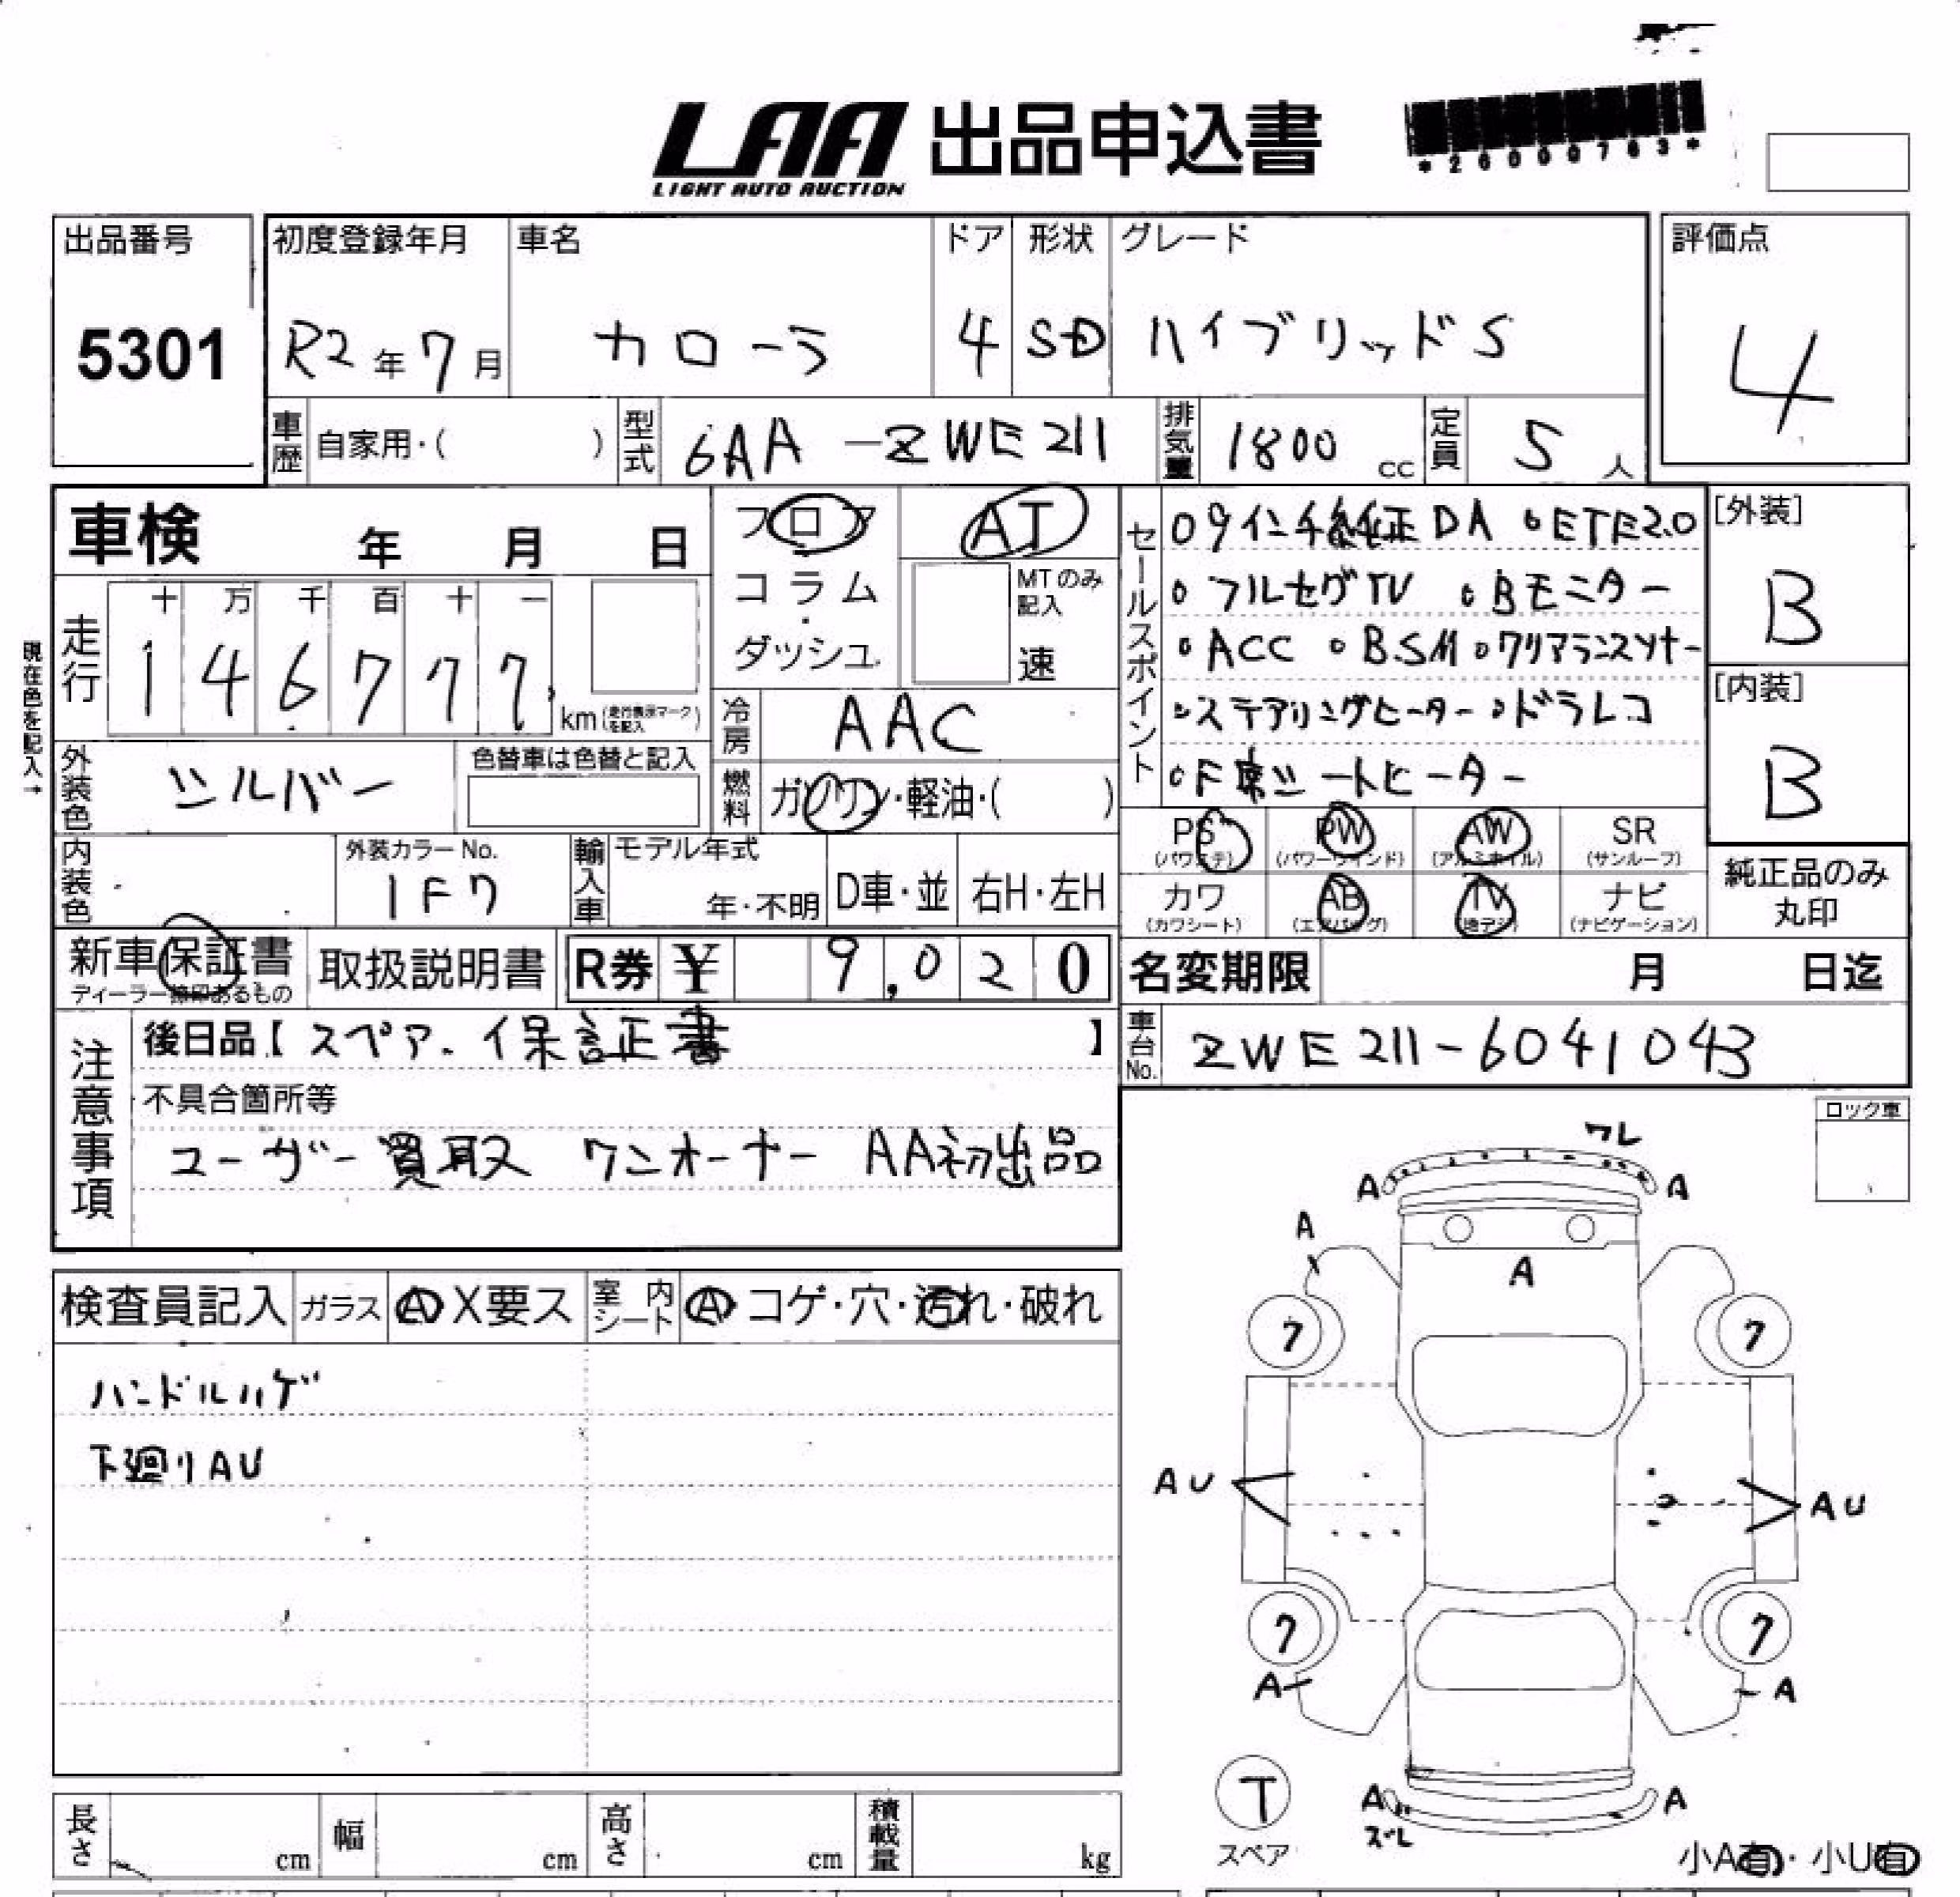 LAA 出品申込書
LIGHT AUTO AUCTION
*26000763*
出品番号
5301
初度登録年月
R2年7月
車名
カローラ
ドア
4
形状
SD
グレード
ハイブリッドS
評価点
4
車歴 自家用・( )
型式 6AA-ZWE211
排気量 1800 cc
定員 5人
車検 年 月 日
現在色を記入→
走行
十 万 千 百 十 一
1 4 6 7 7 7 km(走行表示マークを記入)
フロア
コラム・ダッシュ
AT
MTのみ記入
速
冷房 AAC
燃料 ガソリン・軽油・( )
外装色 シルバー
色替車は色替と記入
内装色
外装カラーNo.
1F7
輸入車 モデル年式
年・不明
D車・並
右H・左H
セールスポイント
○9インチ純正DA ○ETE2.0
○フルセグTV ○Bモニター
○ACC ○B.SM ○クリアランスソナー
○ステアリングヒーター ○ドラレコ
○F席シートヒーター
[外装]
B
[内装]
B
PS (パワステ)
PW (パワーウインド)
AW (アルミホイル)
SR (サンルーフ)
カワ (カワシート)
AB (エアバッグ)
TV (地デジ)
ナビ (ナビゲーション)
純正品のみ
丸印
新車保証書
ディーラー捺印あるもの
取扱説明書
R券 ¥ 9,020
名変期限 月 日迄
車台No. ZWE211-6041043
注意事項
後日品【スペア、保証書】
不具合箇所等
ユーザー買取 ワンオーナー AA初出品
ロック車
検査員記入
ガラス A X要ス
室内シート A・コゲ・穴・汚れ・破れ
ハンドルハゲ
下廻りAU
ワレ
A
A
A
A
7
7
AU
AU
7
7
A
A
T
スペア
A
A
ズレ
小A有・小U有
長さ cm
幅 cm
高さ cm
積載量 kg